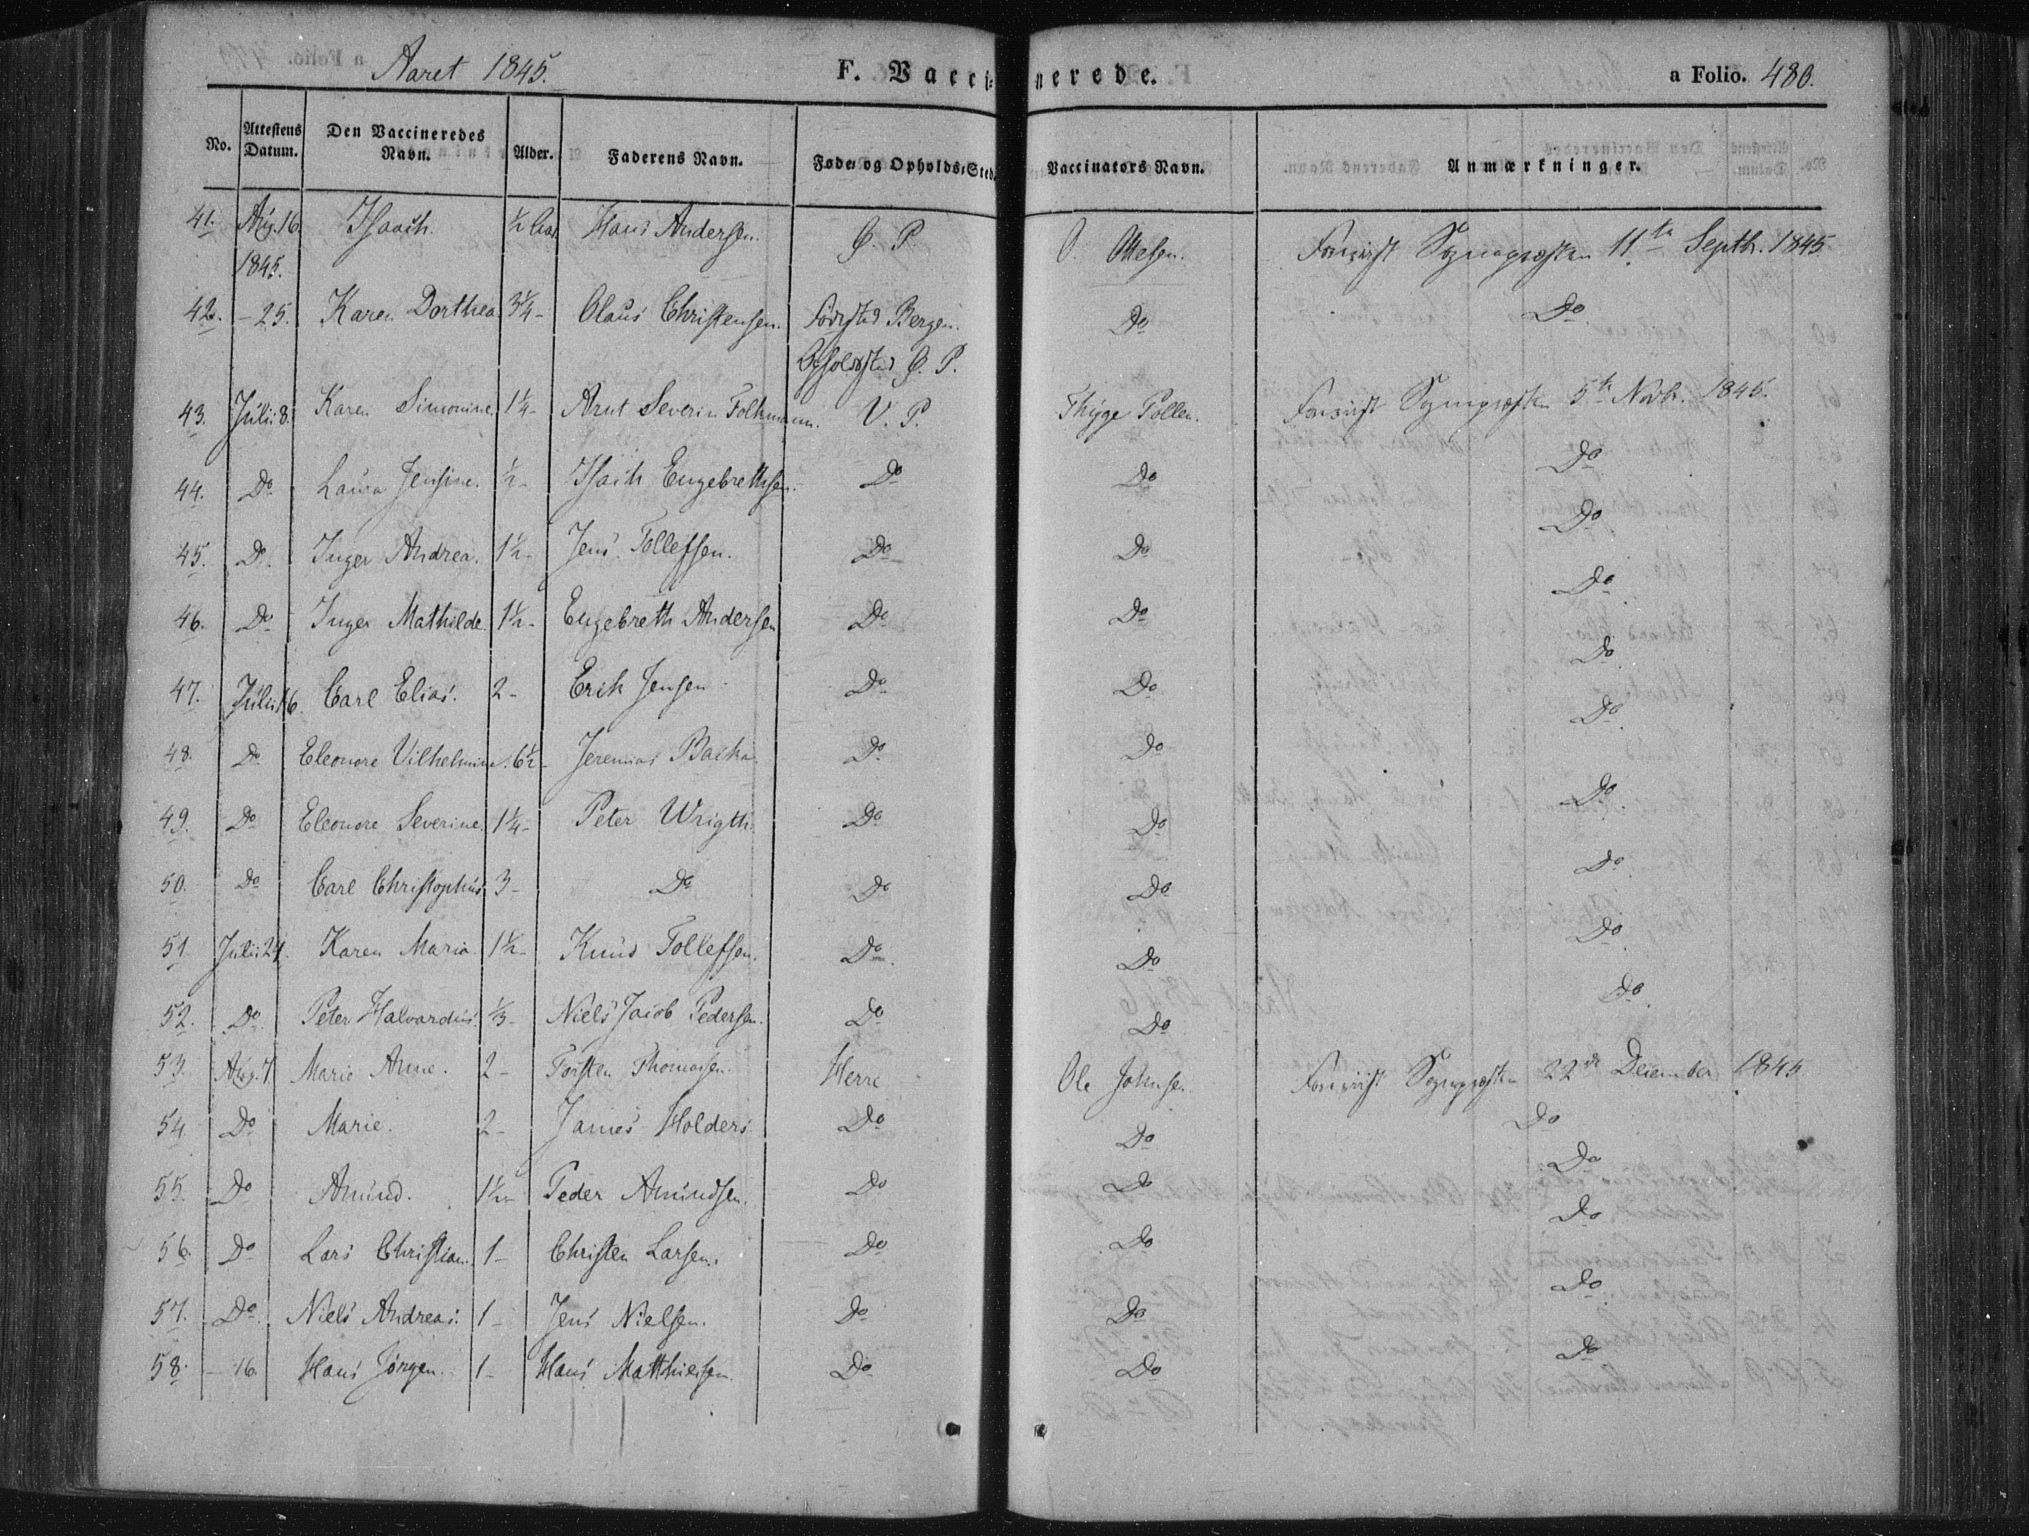 Aaret 1845. F. Vaccinerede. a Folio. 480.
No. Attestens Datum. Den Vaccineredes Navn. Alder. Faderens Navn. Føde- og Opholds-Sted. Vaccinators Navn. Anmærkninger.
41. Aug. 16 1845. Isaach. 1/2 Hans Andersen. O. Ottesen. Sognepræsten 11te Septbr. 1845
42. - 25. Karen Dorthea 3 1/4 - Olaus Christensen. Fødested Bergen. Do Do
Opholdsted P.
43. Julii 8. Karen Simonine 1 1/4 - Arnt Severin Folkmann. V. P. Thyge Pollen. Sognepræsten 5te Novbr. 1845.
44. Do Laura Jensine. 1/2 - Isach Engebrethsen. Do Do Do
45. Do. Inger Andrea. 1 1/2 - Jens Tollefsen. Do Do Do
46. Do Inger Mathilde. 1 1/2 - Engebreth Andersen Do Do Do
47. Julii 16. Carl Elias. 2 - Erik Jensen Do Do Do
48. Do Eleonore Vilhelmine. 6 1/2 - Jeremias Do Do Do
49. Do Eleonore Severine. 1 1/4 - Peter Wrigth. Do Do Do
50. Do Carl Christophus 3 - Do Do Do Do
51. Julii 24. Karen Maria 1 1/2 - Knud Tollefsen. Do Do Do
52. Do Peter Halvardus. 1/3 - Niels Jacob Pedersen. Do Do Do
53. Aug. 7 Marie Anne. 2 - Torsten Thomasen. Herre Ole Johnsen Sognepræsten 22de December 1845
54. Do Marie. 2 - James Holders Do Do Do
55. Do Amund. 1 1/2 - Peder Amundsen. Do Do Do
56. Do Lars Christian. 1 - Christen Larsen. Do Do Do
57. Do Niels Andreas. 1 - Jens Nielsen. Do Do Do
58. - 16. Hans Jörgen. 1 - Hans Matthiesen. Do Do Do